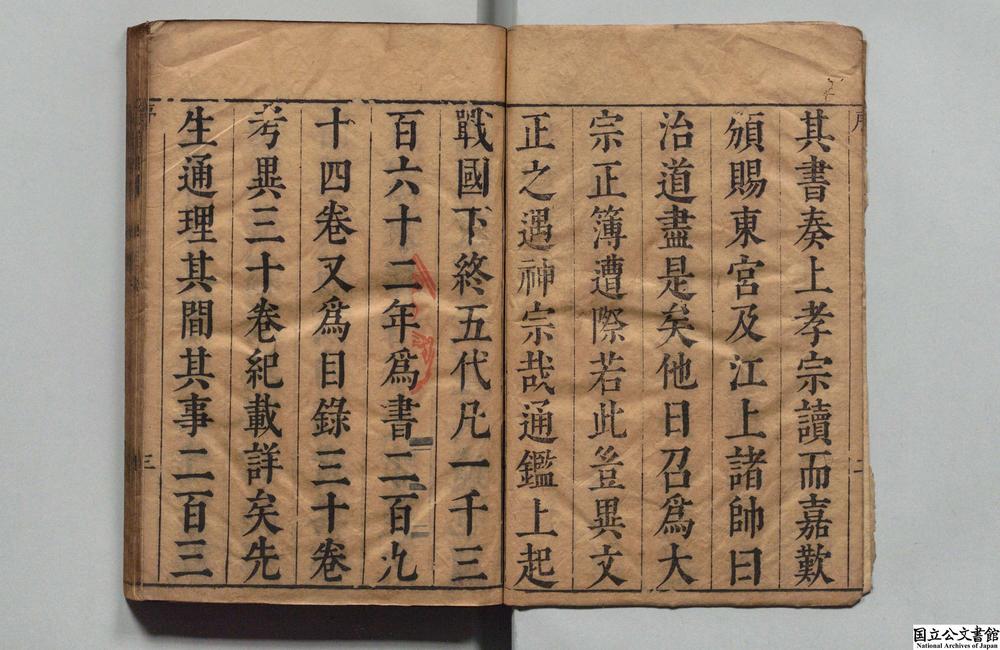 其書奏上孝宗讀而嘉歎
頒賜東宮及江上諸帥曰
治道盡是矣他日召爲大
宗正簿遭際若此豈異文
正之遇神宗哉通鑑上起
戰國下終五代凡一千三
百六十二年爲書二百九
十四卷又爲目錄三十卷
考異三十卷紀載詳矣先
生通理其間其事二百三
三
国立公文書館
National Archives of Japan